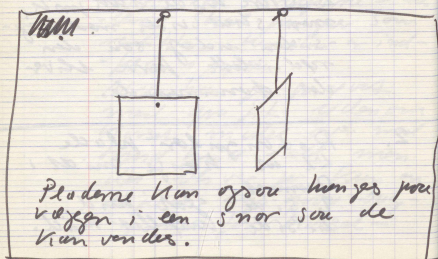 Pladerne kan ogsaa hænges paa
væggen i een snor saa de
kan vendes.